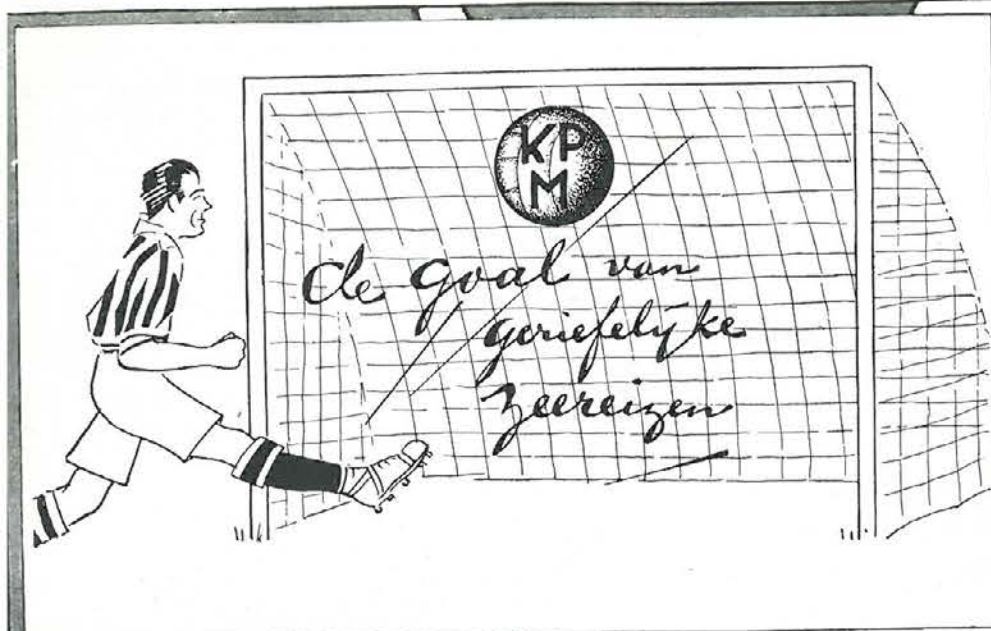 KP
M
de goal van
geriefelijke
zeereizen